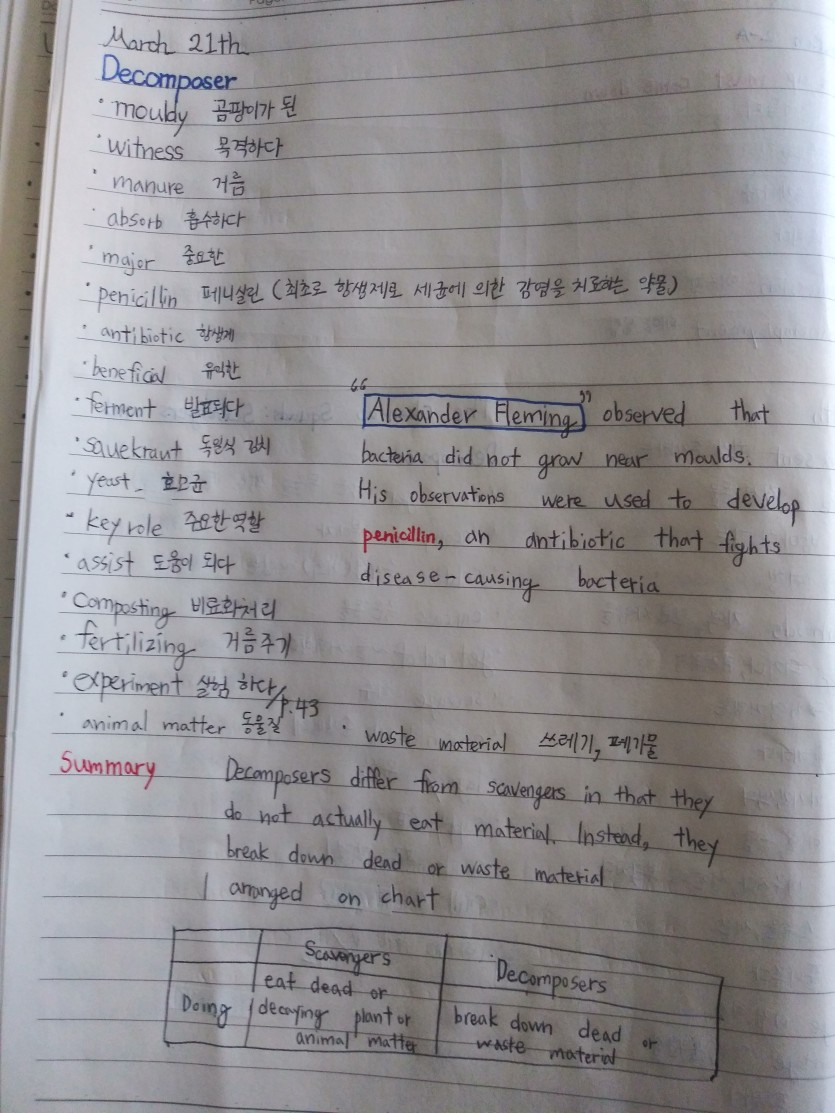 March 21th
Decomposer
· mouldy 곰팡이가 된
· witness 목격하다
· manure 거름
· absorb 흡수하다
· major 중요한
· penicillin 페니실린 (최초로 항생제로 세균에 의한 감염을 치료하는 약물)
· antibiotic 항생제
· beneficial 유익한
· ferment 발효되다
· sauekraut 독일식 김치
· yeast - 효모균
- key role 주요한 역할
· assist 도움이 되다
· composting 비료화처리
· fertilizing 거름주기
· experiment 실험 하다/p.43
· animal matter 동물질
· waste material 쓰레기, 폐기물
"Alexander Fleming" observed that
bacteria did not grow near moulds.
His observations were used to develop
penicillin, an antibiotic that fights
disease-causing bacteria
Summary Decomposers differ from scavengers in that they
do not actually eat material. Instead, they
break down dead or waste material
I arranged on chart
Scavengers Decomposers
Doing
eat dead or
decaying plant or
animal matter
break down dead or
waste material